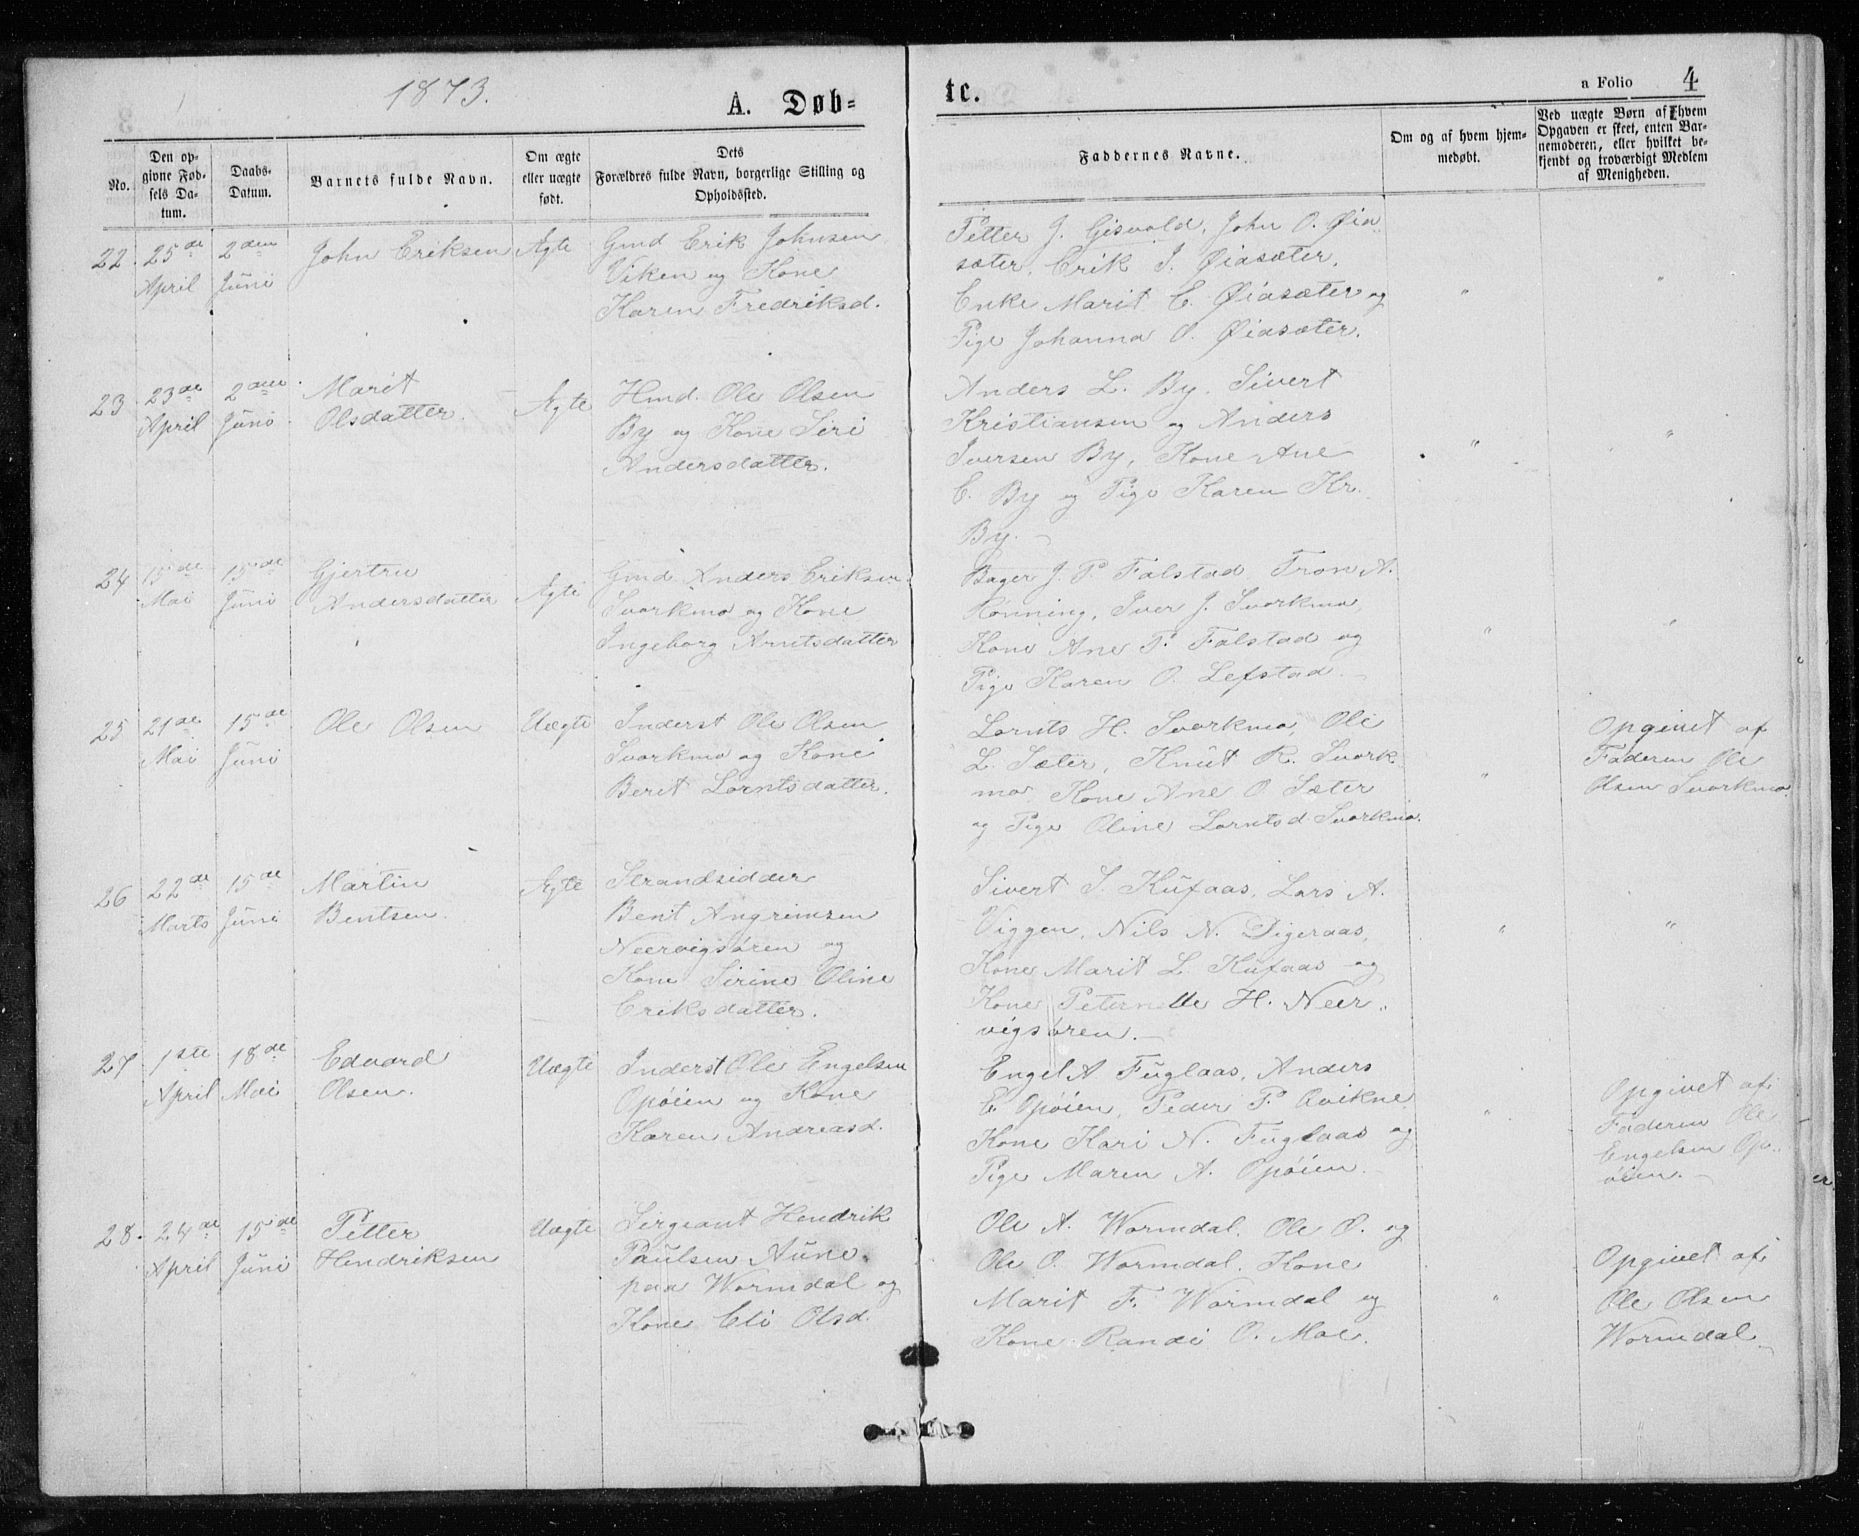 1873.
A. Døb=
tc.
a Folio 4
No.
Den op-
givne Fød-
sels Da-
tum.
Daabs-
Datum.
Barnets fulde Navn.
Om ægte
eller uægte
født.
Dets
Forældres fulde Navn, borgerlige Stilling og
Opholdssted.
Faddernes Navne.
Om og af hvem hjem-
medøbt.
Ved uægte Børn af hvem
Opgaven er skeet, enten Bar-
nemoderen, eller hvilket be-
kjendt og troværdigt Medlem
af Menigheden.
22. 25de April
2den Juni
John Eriksen
Ægte
Gmd Erik Johnsen
Viken og Kone
Karen Fredriksd.
Petter J. Gisvold, John O. Øia
sæter, Erik J. Øiasæter,
Enke Marit E. Øiasæter og
Pige Johanna O. Øiasæter.
" "
23. 23de April
2den Juni
Marit
Olsdatter.
Ægte
Hmd. Ole Olsen
By og Kone Siri
Andersdatter.
Anders L. By, Sivert
Kristiansen og Anders
Iversen By, Kone Ane
E. By og Pige Karen Kr.
By.
" "
24 15de Mai
15de Juni
Gjertru
Andersdatter
Ægte
Gmd Anders Eriksen
Svorkmo og Kone
Ingeborg Arntsdatter
Bager J. P. Falstad, Tron A.
Rønning, Iver J. Svorkmo,
Kone Ane P. Falstad og
Pige Karen O. Lefstad.
" "
25 21de Mai
15de Juni
Ole Olsen
Uægte
Inderst Ole Olsen
Svorkmo og Kone
Berit Lorntsdatter.
Lornts H. Svorkmo, Ole
L. Sæter, Knut R. Svork
mo, Kone Ane O. Sæter
og Pige Oline Lorntsd Svorkmo.
"
Opgivet af
Faderen Ole
Olsen Svorkmo.
26 22de Marts
15de Juni
Martin
Bentsen.
Ægte
Strandsidder
Bent Angrimsen
Neervigsøren og
Kone Sirine Oline
Eriksdatter.
Sivert S. Kufaas, Lars A.
Viggen, Nils N. Digeraas,
Kone Marit L. Kufaas og
Kone Peternelle H. Neer-
vigsøren.
" "
27 1ste April
18de Mai
Edvard
Olsen.
Uægte
Inderst Ole Engelsen
Opøien og Kone
Karen Andreasd.
Engel A Fuglaas, Anders
E. Opøien, Peder P. Qvikne
Kone Kari N. Fuglaas og
Pige Maren A. Opøien.
"
Opgivet af
Faderen Ole
Engelsen Op-
øien.
28. 24de April
15de Juni
Petter
Hendriksen
Uægte
Sergeant Hendrik
Paulsen Aune
paa Wormdal og
Kone Eli Olsd.
Ole A. Wormdal, Ole O. og
Ole O. Wormdal, Kone
Marit F. Wormdal og
Kone Randi O. Moe.
"
Opgivet af
Ole Olsen
Wormdal